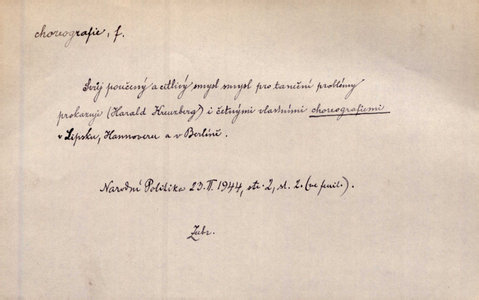 choreografie, f.
Svůj poučený a citlivý smysl smysl pro taneční problémy
prokazuje (Harald Kreuzberg) i četnými vlastními choreografiemi
v Lipsku, Hannoveru a v Berlíně.
Narodní Politika 23. II. 1944, str. 2, sl. 2. (ve feuil.).
Zubr.